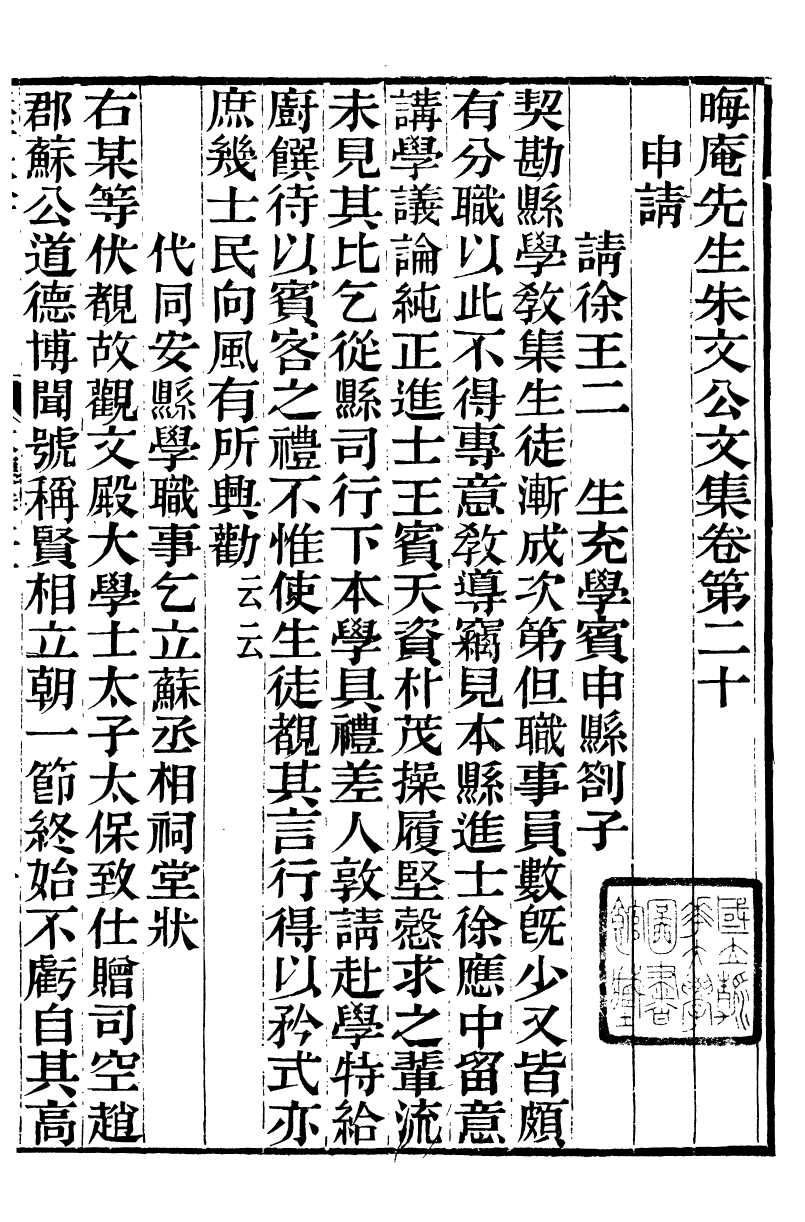 晦庵先生朱文公文集卷第二十
申請
請徐王二　生充學賓申縣劄子
契勘縣學敎集生徒漸成次第但職事員數旣少又皆頗
有分職以此不得專意敎導竊見本縣進士徐應中留意
講學議論純正進士王賓天資朴茂操履堅慤求之輩流
未見其比乞從縣司行下本學具禮差人敦請赴學特給
廚饌待以賓客之禮不惟使生徒覩其言行得以矜式亦
庶幾士民向風有所興勸云云
代同安縣學職事乞立蘇丞相祠堂狀
右某等伏覩故觀文殿大學士太子太保致仕贈司空趙
郡蘇公道德博聞號稱賢相立朝一節終始不虧自其高